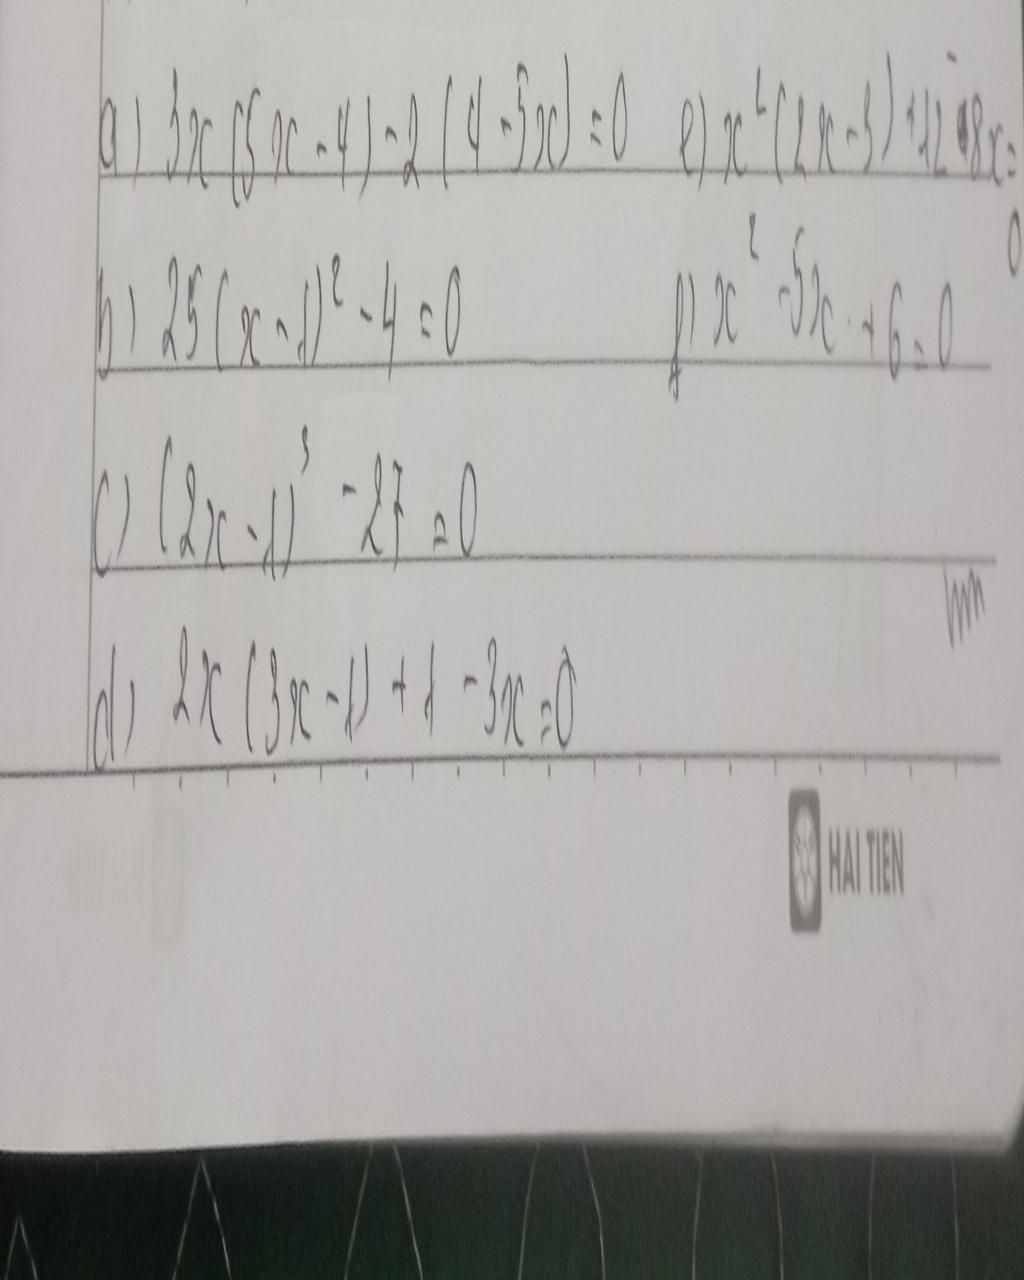 a) 3x(5x-4)-2(4-5x)=0 e) x²(2x-3)+12-8x=0
b) 25(x-1)²-4=0 f) x²-5x+6=0
c) (2x-1)³-27=0
d) 2x(3x-1)+1-3x=0
HAI TIEN